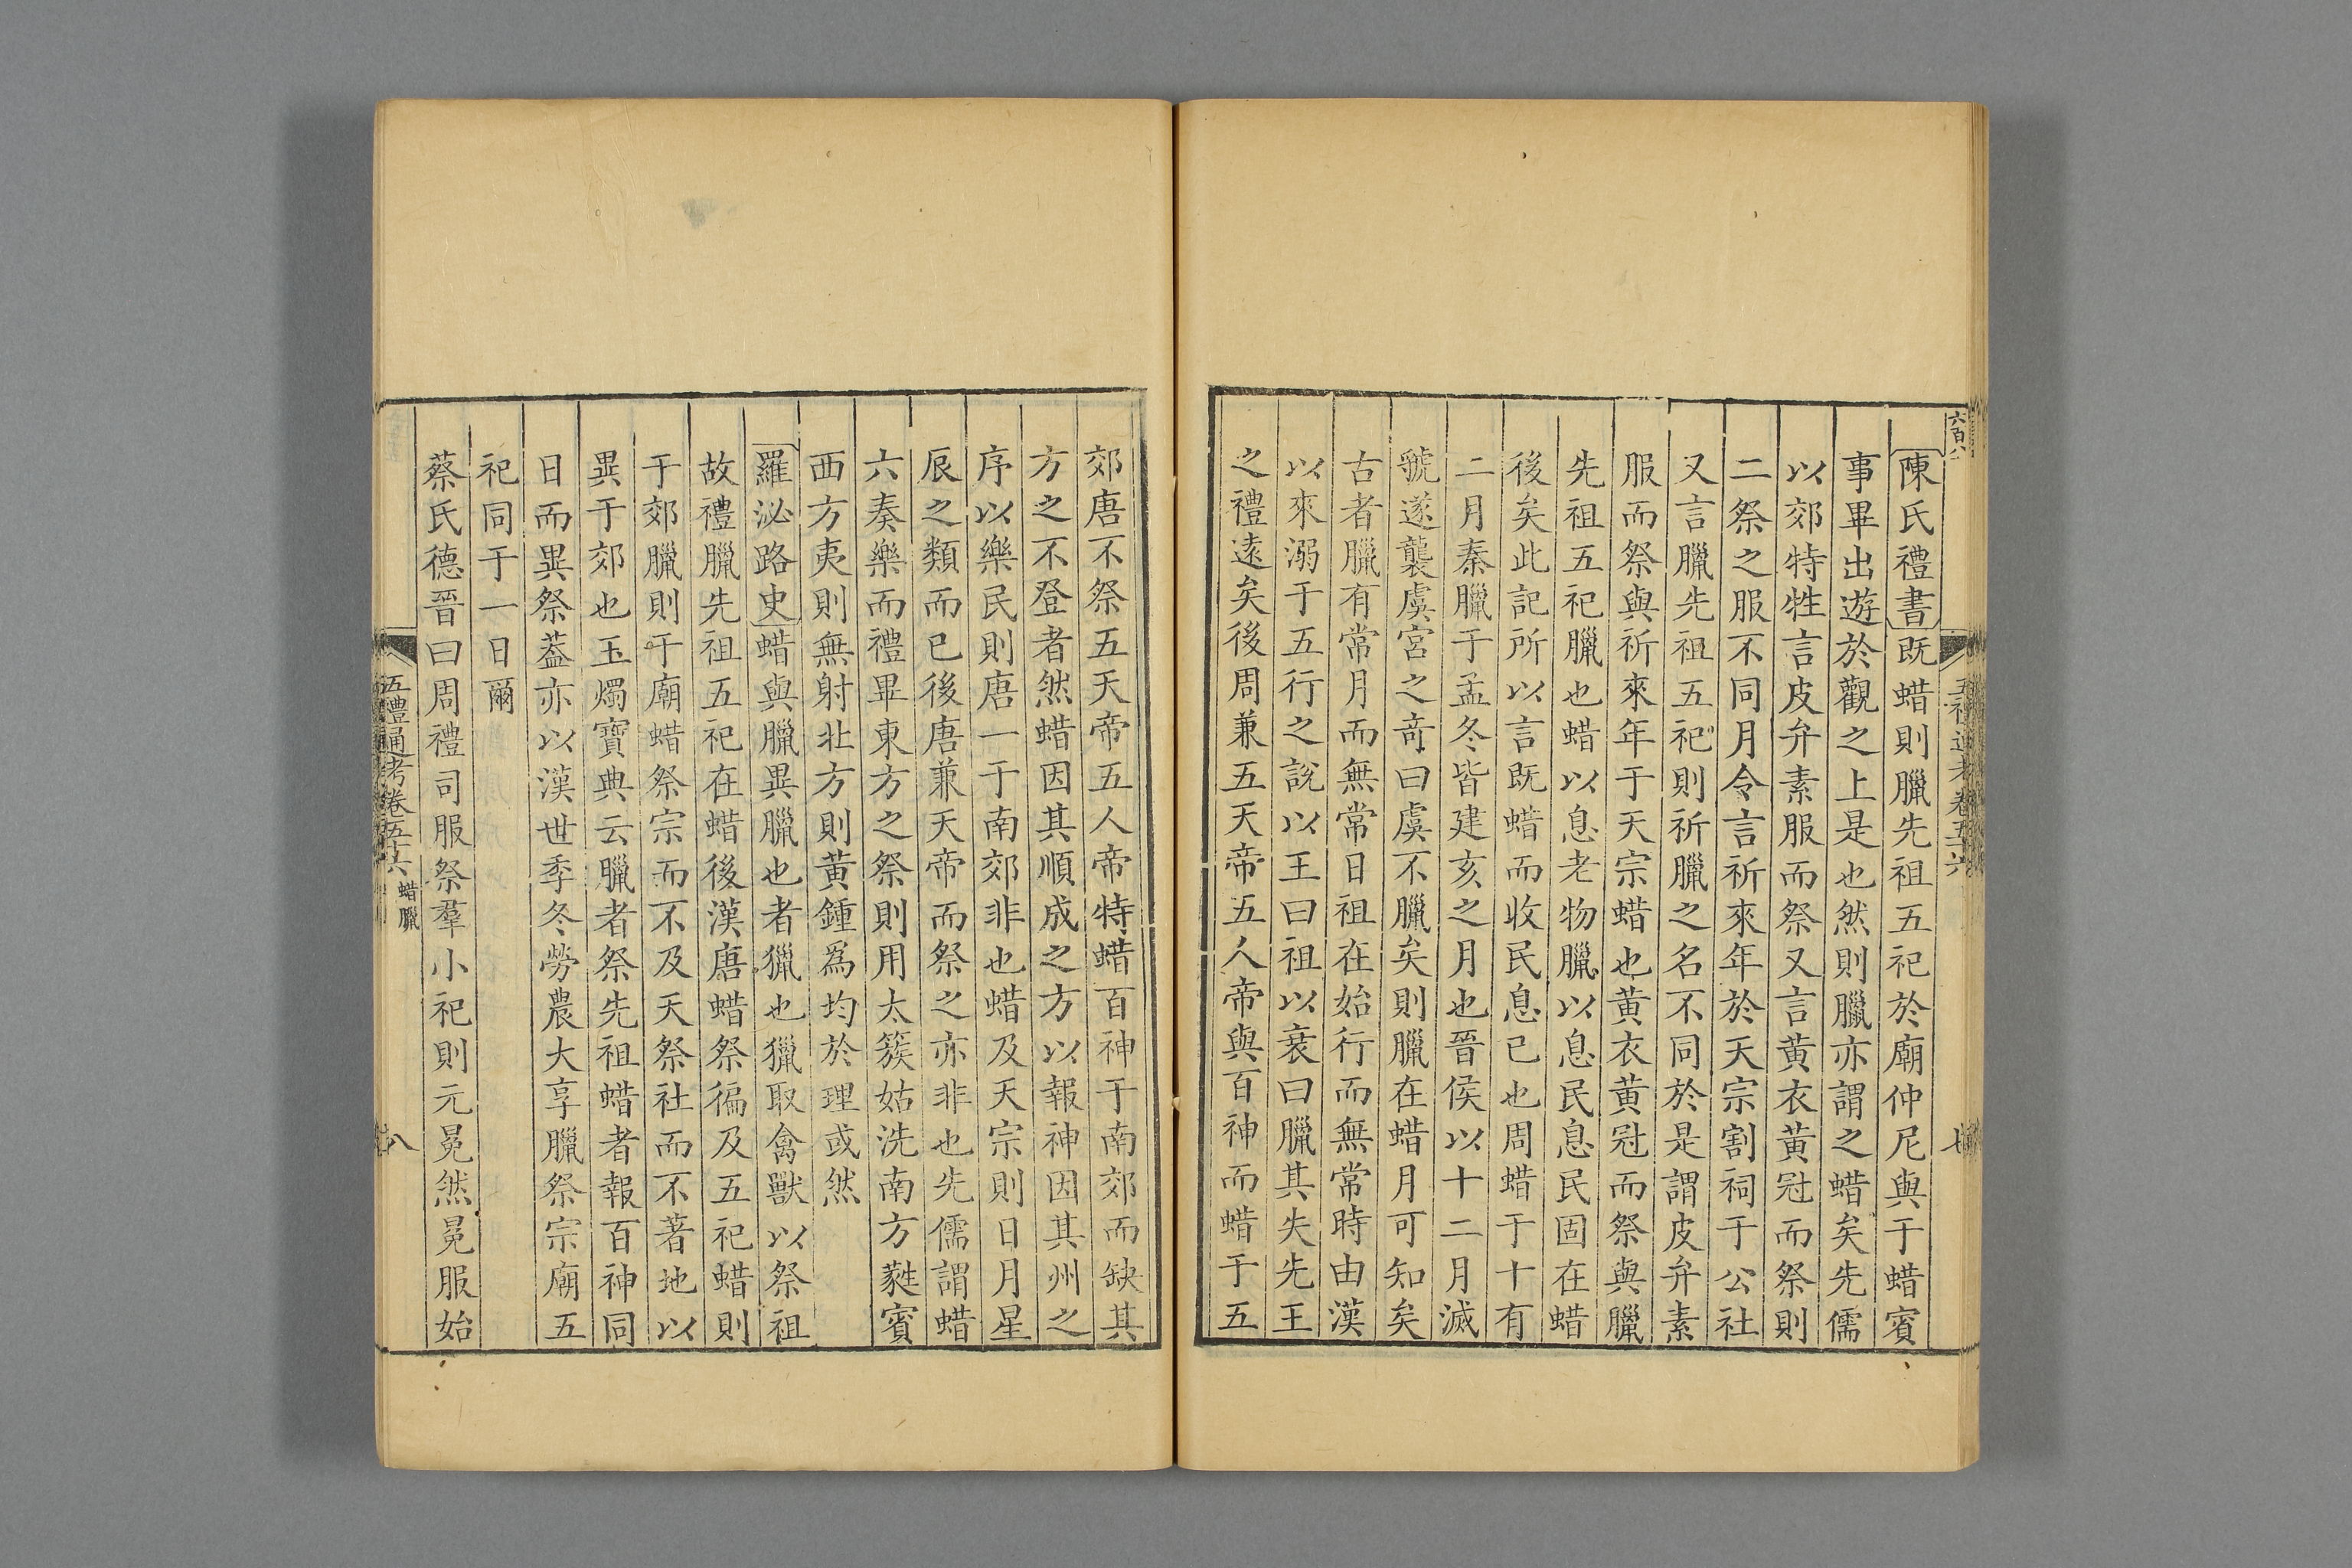 六百八
五禮通考卷五十六
陳氏禮書既蜡則臘先祖五祀於廟仲尼與于蜡賓
事畢出遊於觀之上是也然則臘亦謂之蜡矣先儒
以郊特牲言皮弁素服而祭又言黃衣黃冠而祭則
二祭之服不同月令言祈來年於天宗割祠于公社
又言臘先祖五祀則祈臘之名不同於是謂皮弁素
服而祭與祈來年于天宗蜡也黃衣黃冠而祭與臘
先祖五祀臘也蜡以息老物臘以息民息民固在蜡
後矣此記所以言既蜡而收民息已也周蜡于十有
二月秦臘于孟冬皆建亥之月也晉侯以十二月滅
虢遂襲虞宮之奇曰虞不臘矣則臘在蜡月可知矣
古者臘有常月而無常日祖在始行而無常時由漢
以來溺于五行之說以王曰祖以衰曰臘其失先王
之禮遠矣後周兼五天帝五人帝與百神而蜡于五
郊唐不祭五天帝五人帝特蜡百神于南郊而缺其
方之不登者然蜡因其順成之方以報神因其州之
序以樂民則唐一于南郊非也蜡及天宗則日月星
辰之類而已後唐兼天帝而祭之亦非也先儒謂蜡
六奏樂而禮畢東方之祭則用太簇姑洗南方蕤賓
西方夷則無射北方則黃鍾爲均於理或然
羅泌路史蜡與臘異臘也者獵也獵取禽獸以祭祖
故禮臘先祖五祀在蜡後漢唐蜡祭徧及五祀蜡則
于郊臘則于廟蜡祭宗而不及天祭社而不著地以
異于郊也玉燭寶典云臘者祭先祖蜡者報百神同
日而異祭葢亦以漢世季冬勞農大享臘祭宗廟五
祀同于一日爾
蔡氏德晉曰周禮司服祭羣小祀則元冕然冕服始
五禮通考卷五十六 蜡臘
八